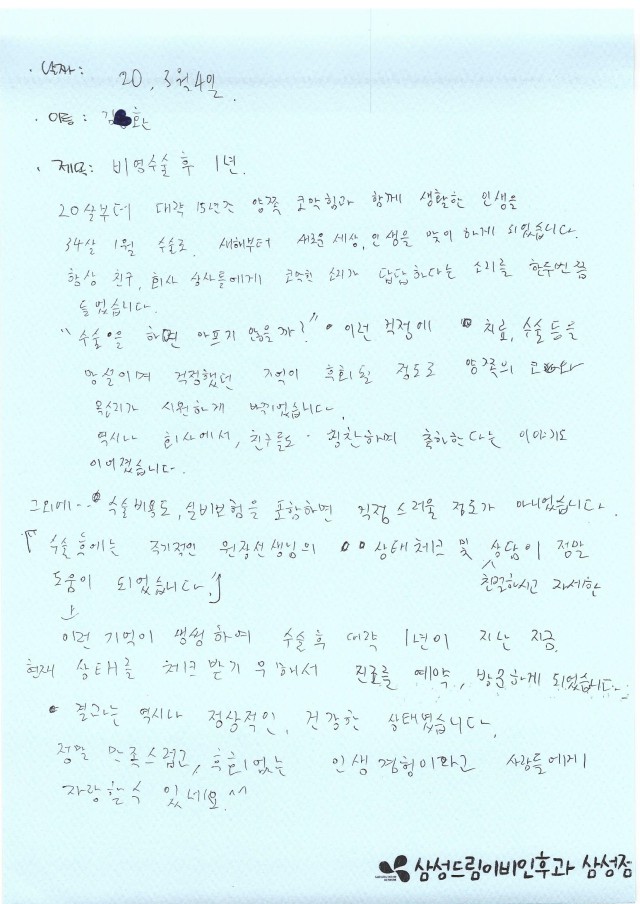 · 날짜: 20. 3월 4일.
· 이름: 김 환
· 제목: 비염수술 후 1년.
20살부터 대략 15년간 양쪽 코막힘과 함께 생활한 인생을
34살 1월 수술로. 새해부터 새로운 세상, 인생을 맞이 하게 되었습니다.
항상 친구, 회사 상사들에게 코막힌 소리가 답답하다는 소리를 한두번쯤
들었습니다.
"수술을 하면 아프기 않을까?" 이런 걱정에 치료, 수술 등을
망설이며 걱정했던 기억이 후회될 정도로 양쪽의 코와
목소리가 시원하게 바뀌었습니다.
역시나 회사에서, 친구들도 칭찬하며 축하한다는 이야기도
이어졌습니다.
그외에.. 수술비용도, 실비보험을 포함하면 걱정 스러울 정도가 아니었습니다.
『수술 후에는 주기적인 원장선생님의 상태체크 및 상담이 정말
친절하시고 자세한
도움이 되었습니다.』
이런 기억이 생생하여 수술후 대략 1년이 지난 지금.
현재 상태를 체크 받기 위해서 진료를 예약, 방문하게 되었습니다.
결과는 역시나 정상적인, 건강한 상태였습니다.
정말 만족스럽고, 후회없는 인생경험이라고 사람들에게
자랑할 수 있네요^^
삼성드림이비인후과 삼성점